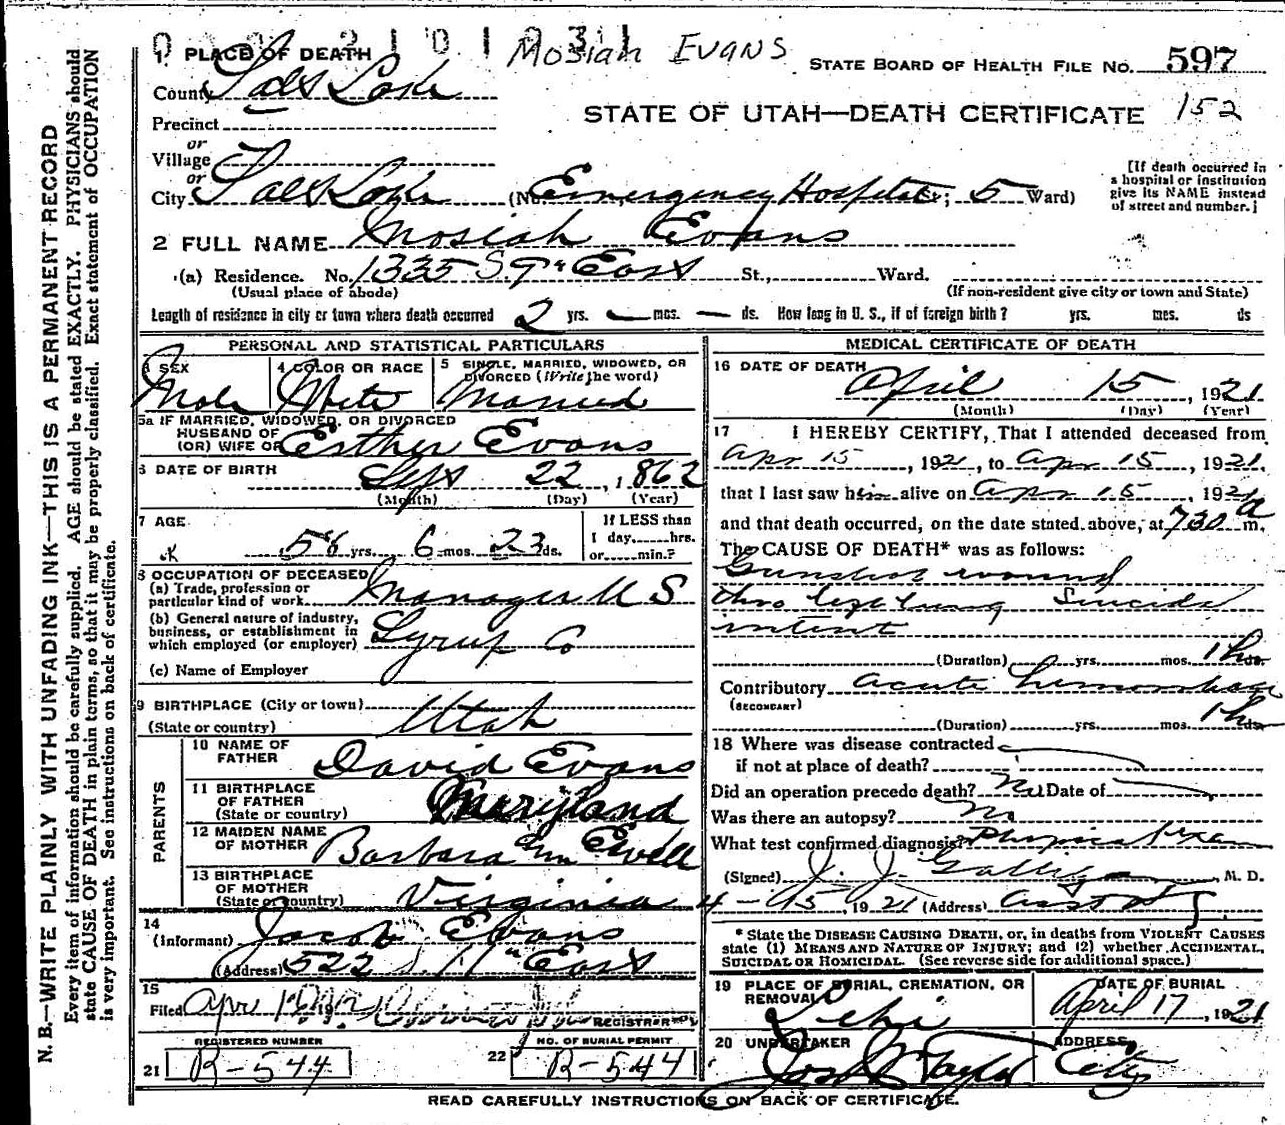 Mosiah Evans
1 PLACE OF DEATH
STATE BOARD OF HEALTH FILE NO. 597
County Salt Lake
STATE OF UTAH—DEATH CERTIFICATE 152
Precinct
or
Village
or
City Salt Lake (No. Emergency Hospital St.; 5 Ward)
[If death occurred in
a hospital or institution
give its NAME instead
of street and number.]
2 FULL NAME Mosiah Evans
(a) Residence. No. 1335 S 9th East St., Ward.
(Usual place of abode) (If non-resident give city or town and State)
Length of residence in city or town where death occurred 2 yrs. — mos. — ds. How long in U. S., if of foreign birth? yrs. mos. ds
PERSONAL AND STATISTICAL PARTICULARS
3 SEX
Male
4 COLOR OR RACE
White
5 SINGLE, MARRIED, WIDOWED, OR
DIVORCED (Write the word)
Married
5a IF MARRIED, WIDOWED, OR DIVORCED
HUSBAND OF
(OR) WIFE OF Esther Evans
6 DATE OF BIRTH
Sept 22, 1862
(Month) (Day) (Year)
7 AGE
58 yrs. 6 mos. 23 ds.
If LESS than
1 day, hrs.
or min.?
8 OCCUPATION OF DECEASED
(a) Trade, profession or
particular kind of work Manager U S
(b) General nature of industry,
business, or establishment in
which employed (or employer) Syrup Co
(c) Name of Employer
9 BIRTHPLACE (City or town)
(State or country) Utah
PARENTS
10 NAME OF
FATHER David Evans
11 BIRTHPLACE
OF FATHER
(State or country) Maryland
12 MAIDEN NAME
OF MOTHER Barbara Ann Ewell
13 BIRTHPLACE
OF MOTHER
(State or country) Virginia
14
(Informant) Jacob Evans
(Address) 522 S. 11th East
15
Filed Apr
REGISTRAR
REGISTERED NUMBER
21 R-544
NO. OF BURIAL PERMIT
22 R-544
MEDICAL CERTIFICATE OF DEATH
16 DATE OF DEATH
April 15, 1921
(Month) (Day) (Year)
17 I HEREBY CERTIFY, That I attended deceased from
Apr 15, 1921, to Apr 15, 1921
that I last saw him alive on Apr 15, 1921
and that death occurred, on the date stated above, at 730 a m.
The CAUSE OF DEATH* was as follows:
Gunshot wound
thro left lung Suicidal
intent
(Duration) yrs. mos. 1 hr ds.
Contributory acute hemorrhage
(SECONDARY)
(Duration) yrs. mos. 1 hr ds.
18 Where was disease contracted
if not at place of death?
Did an operation precede death? No Date of
Was there an autopsy? No
What test confirmed diagnosis? Physical Exam
(Signed) J. J. Galligan, M. D.
4-15, 1921 (Address)
* State the DISEASE CAUSING DEATH, or, in deaths from VIOLENT CAUSES
state (1) MEANS AND NATURE OF INJURY; and (2) whether ACCIDENTAL,
SUICIDAL OR HOMICIDAL. (See reverse side for additional space.)
19 PLACE OF BURIAL, CREMATION, OR
REMOVAL
Lehi
DATE OF BURIAL
April 17, 1921
20 UNDERTAKER
Jos Wm Taylor
ADDRESS
City
READ CAREFULLY INSTRUCTIONS ON BACK OF CERTIFICATE.
N. B.—WRITE PLAINLY WITH UNFADING INK—THIS IS A PERMANENT RECORD
Every item of information should be carefully supplied. AGE should be stated EXACTLY. PHYSICIANS should
state CAUSE OF DEATH in plain terms, so that it may be properly classified. Exact statement of OCCUPATION
is very important. See instructions on back of certificate.